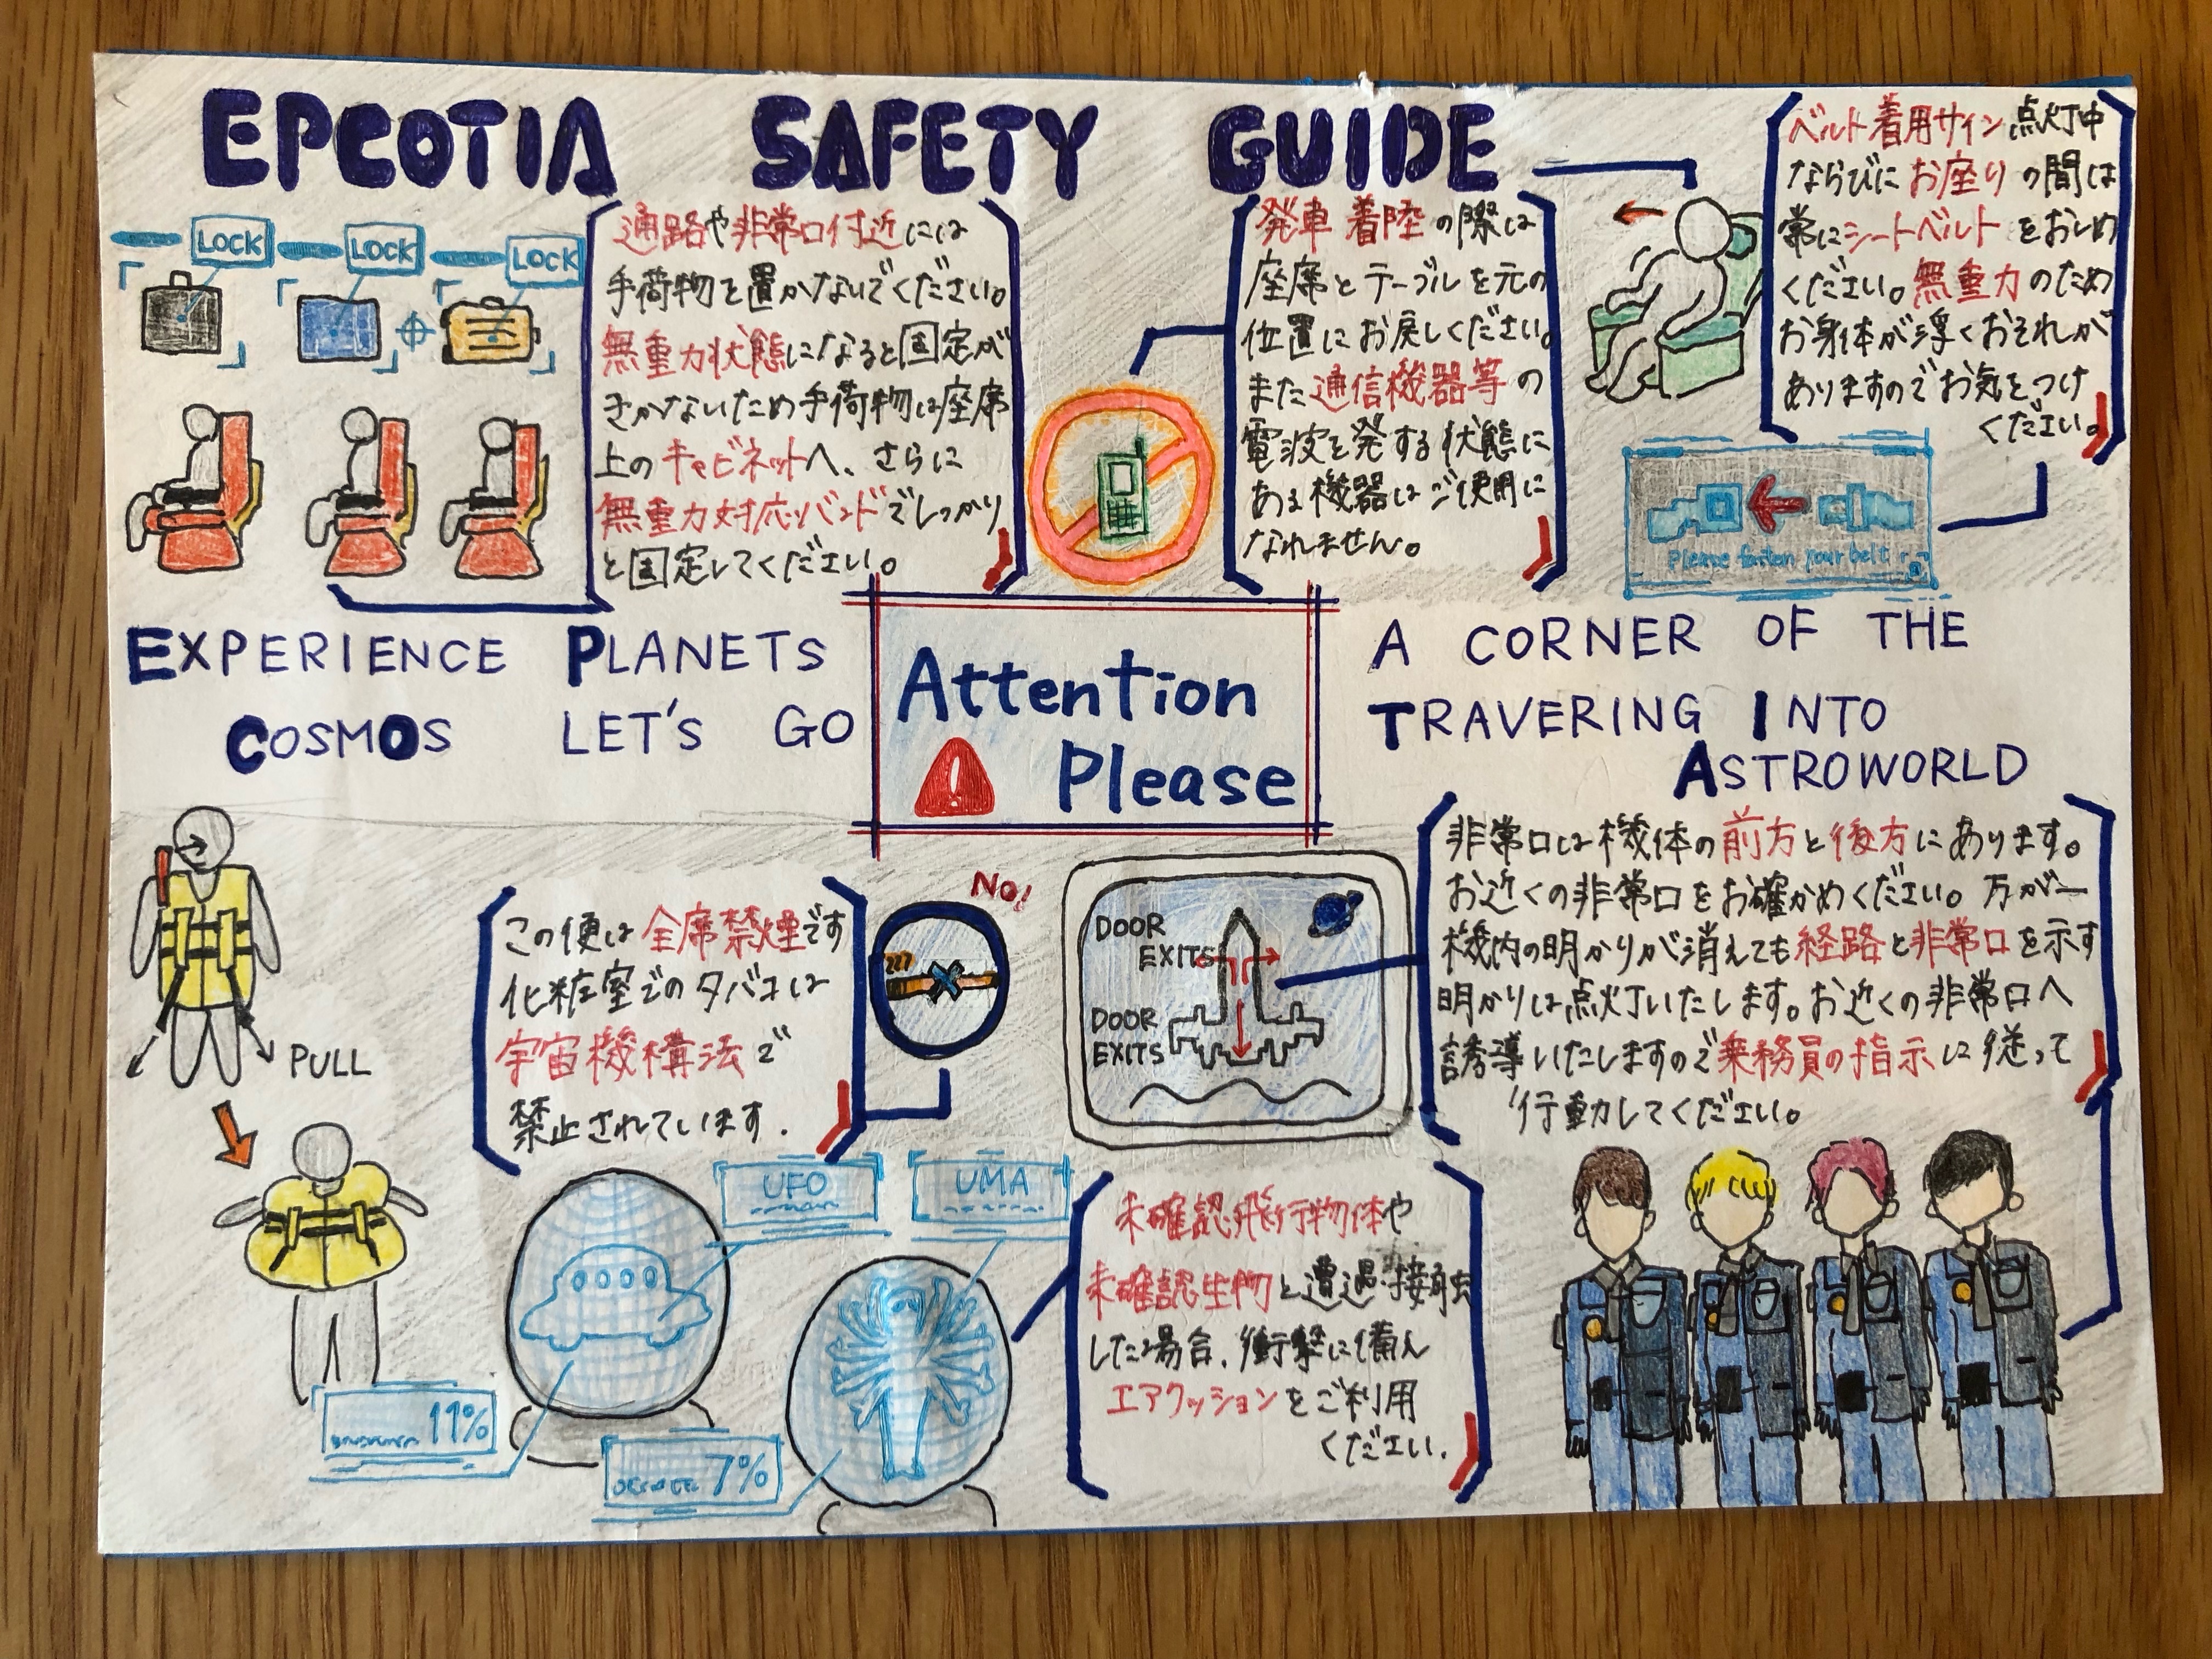 EPCOTIA SAFETY GUIDE
LOCK
LOCK
LOCK
通路や非常口付近には
手荷物を置かないでください。
無重力状態になると固定が
きかないため手荷物は座席
上のキャビネットへ、さらに
無重力対応バンドでしっかり
と固定してください。
発車 着陸の際は
座席とテーブルを元の
位置にお戻しください。
また通信機器等の
電波を発する状態に
ある機器はご使用に
なれません。
ベルト着用サイン点灯中
ならびにお座りの間は
常にシートベルトをおしめ
ください。無重力のため
お身体が浮くおそれが
ありますのでお気をつけ
ください。
Please fasten your belt
EXPERIENCE PLANETS
COSMOS LET'S GO
Attention
Please
A CORNER OF THE
TRAVERING INTO
ASTROWORLD
PULL
この便は全席禁煙です
化粧室でのタバコは
宇宙機構法で
禁止されています.
No!
DOOR
EXITS
DOOR
EXITS
非常口は機体の前方と後方にあります。
お近くの非常口をお確かめください。万が一
機内の明かりが消えても経路と非常口を示す
明かりは点灯いたします。お近くの非常口へ
誘導いたしますので乗務員の指示に従って
行動してください。
UFO
UMA
11%
7%
未確認飛行物体や
未確認生物と遭遇・接触
した場合、衝撃に備え
エアクッションをご利用
ください.